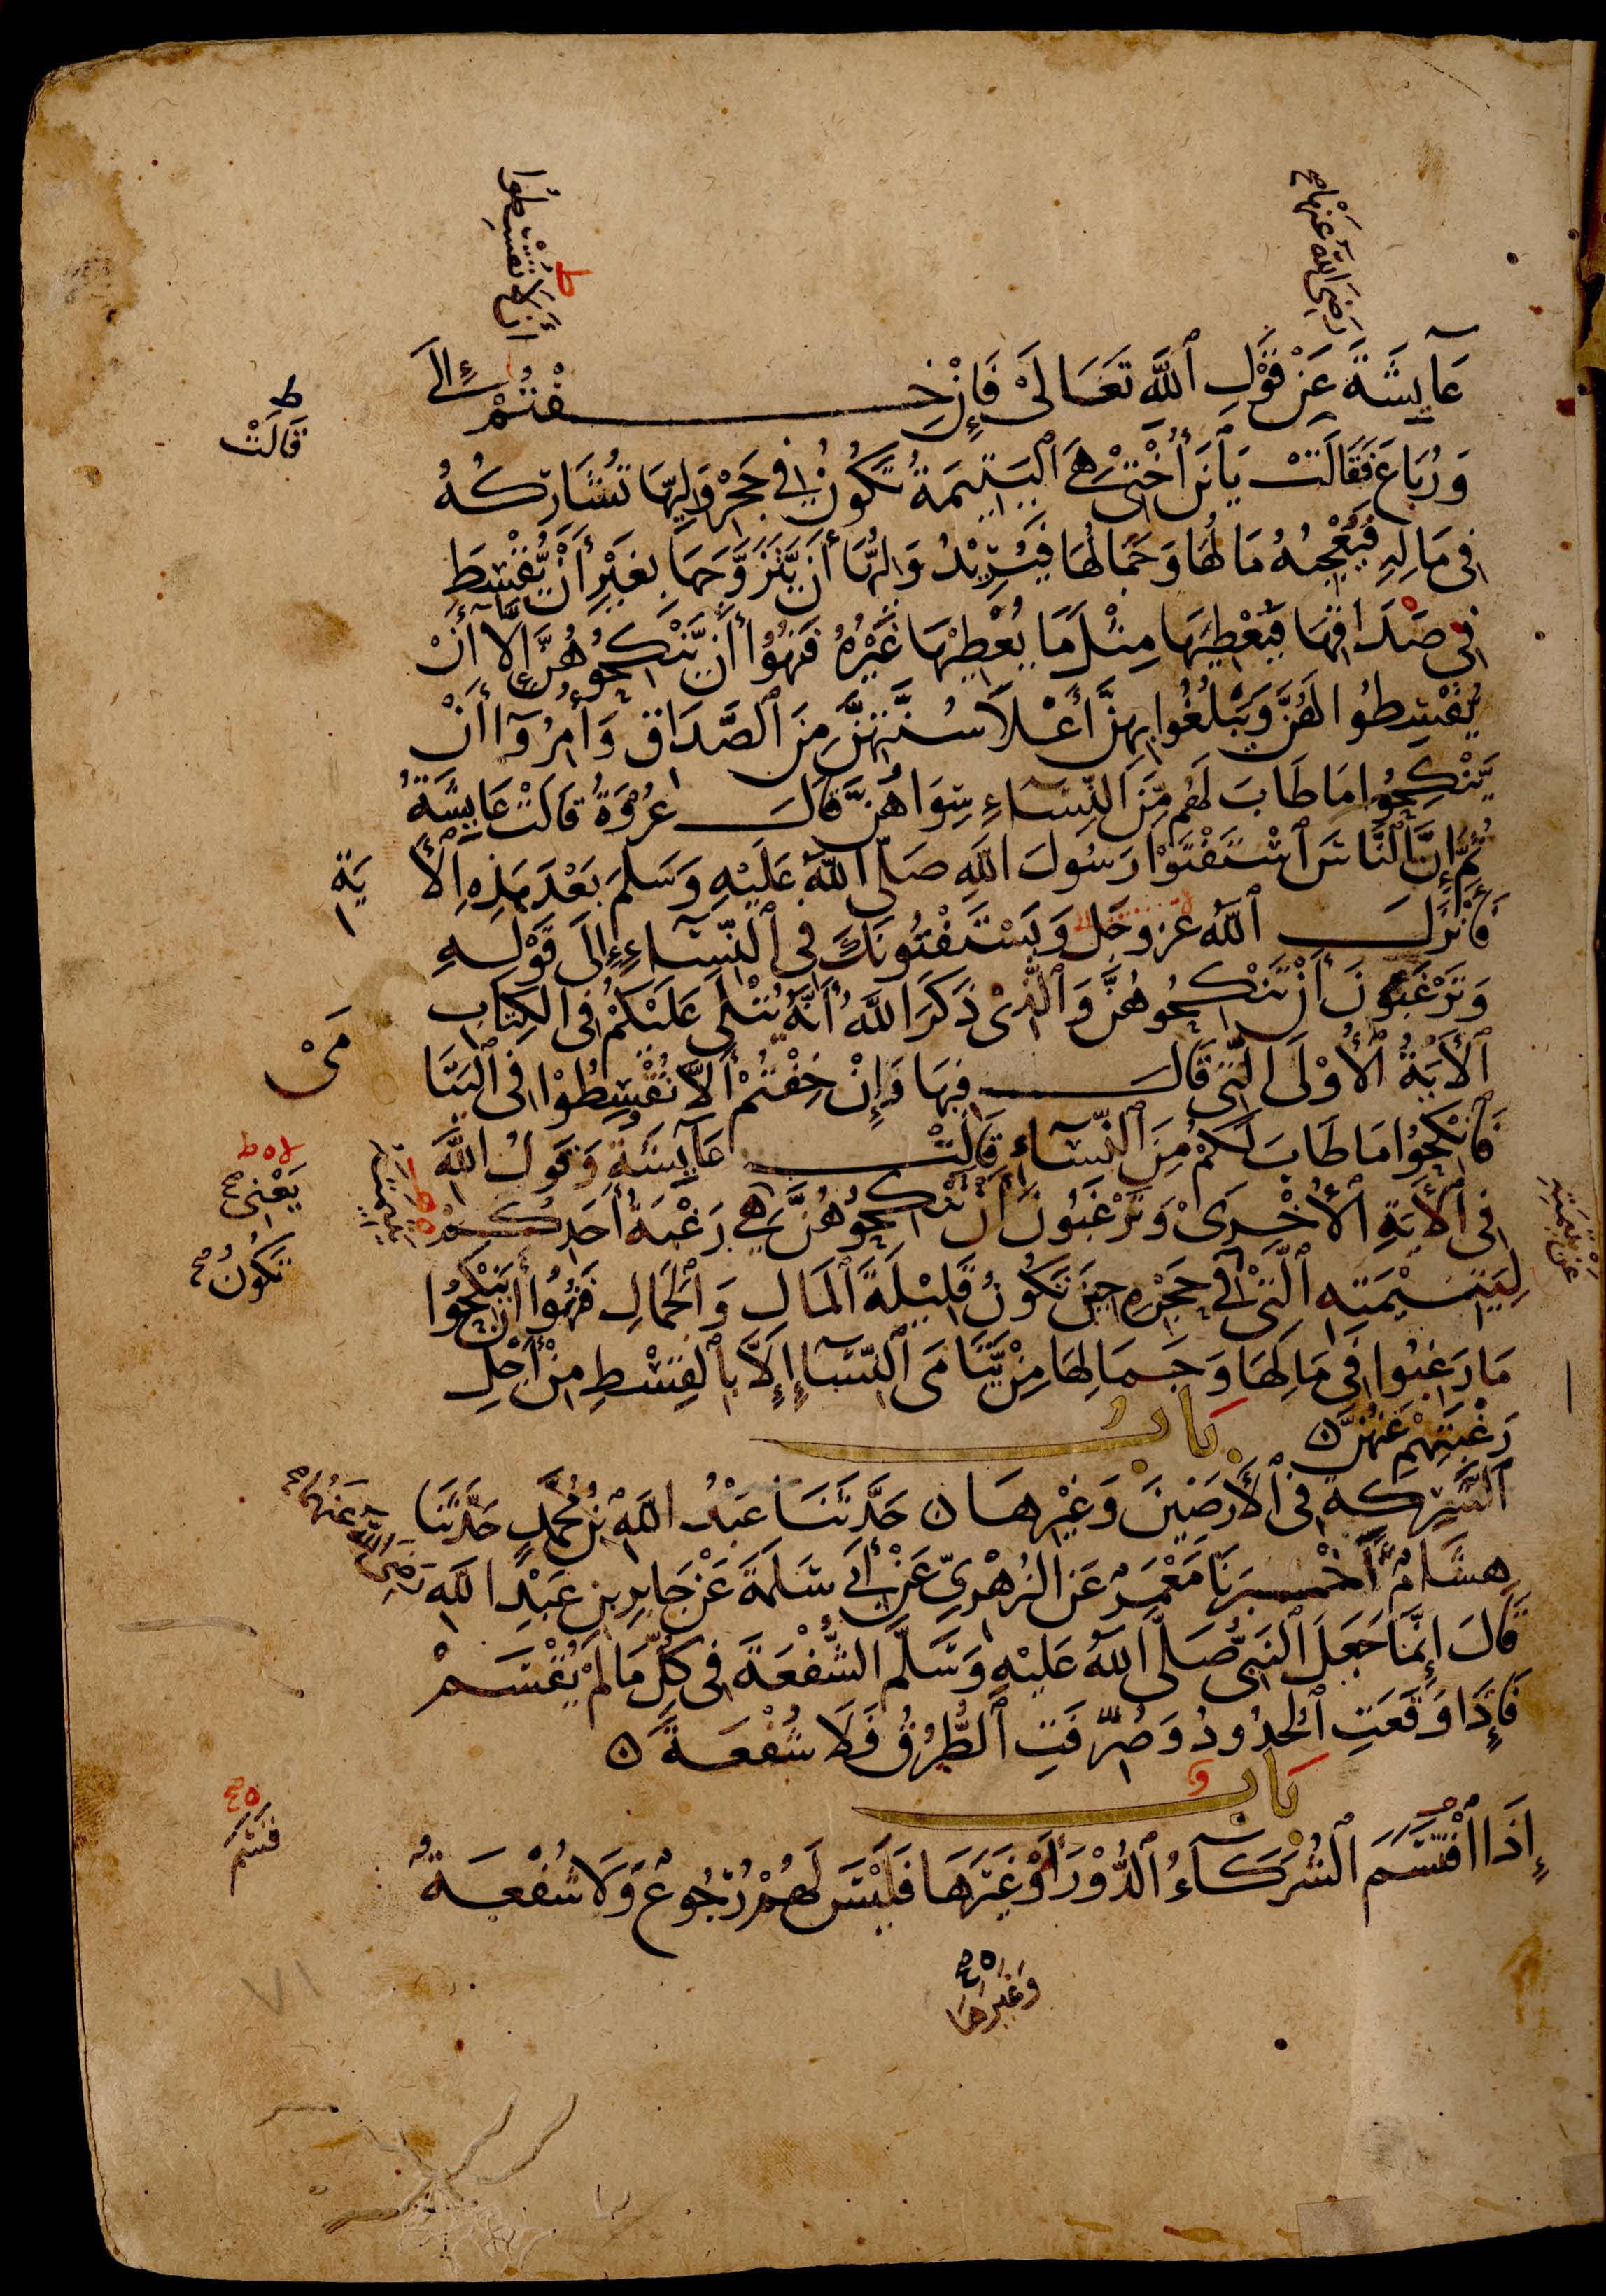 رضي الله عنها
أن لا تقسطوا
ط
عايشة عن قول الله تعالى فإن خفتم إلى
ط
قالت
ورباع فقالت يا بن أختي هي اليتيمة تكون في حجر وليها تشاركه
في ماله فيعجبه مالها وجمالها فيريد وليها أن يتزوجها بغير أن يقسط
في صداقها فيعطيها مثل ما يعطيها غيره فنهوا أن ينكحوهن إلا أن
يقسطوا لهن ويبلغوا بهن أعلا سنتهن من الصداق وأمروا أن
ينكحوا ما طاب لهم من النساء سواهن قال عروة قالت عايشة
ثم إن الناس استفتوا رسول الله صلى الله عليه وسلم بعد هذه الأ ية
فأنزل الله عز وجل ويستفتونك في النساء إلى قوله
وترغبون أن تنكحوهن والذي ذكر الله أنه يتلى عليكم في الكتاب
الأية الأولى التي قال فيها وإن خفتم ألا تقسطوا في اليتا مى
فانكحوا ما طاب لكم من النساء قالت عايشة وقول الله
ه ط
يعني
في الأية الأخرى وترغبون أن تنكحوهن هي رغبة أحدكم
تكون
عن يتيمته
ليتيمته التي في حجره حين تكون قليلة المال والجمال فنهوا أن ينكحوا
ما رغبوا في مالها وجمالها من يتامى النساء إلا بالقسط من أجل
رغبتهم عنهن
باب
الشركة في الأرضين وغيرها حدثنا عبد الله بن محمد حدثنا
هشام أخبرنا معمر عن الزهري عن أبي سلمة عن جابر بن عبد الله
رضي الله عنهما
قال إنما جعل النبي صلى الله عليه وسلم الشفعة في كل ما لم يقسم
فإذا وقعت الحدود وصرفت الطرق فلا شفعة
باب
إذا اقتسم الشركاء الدور أو غيرها فليس لهم رجوع ولا شفعة
قسم
وغيرها
٧١